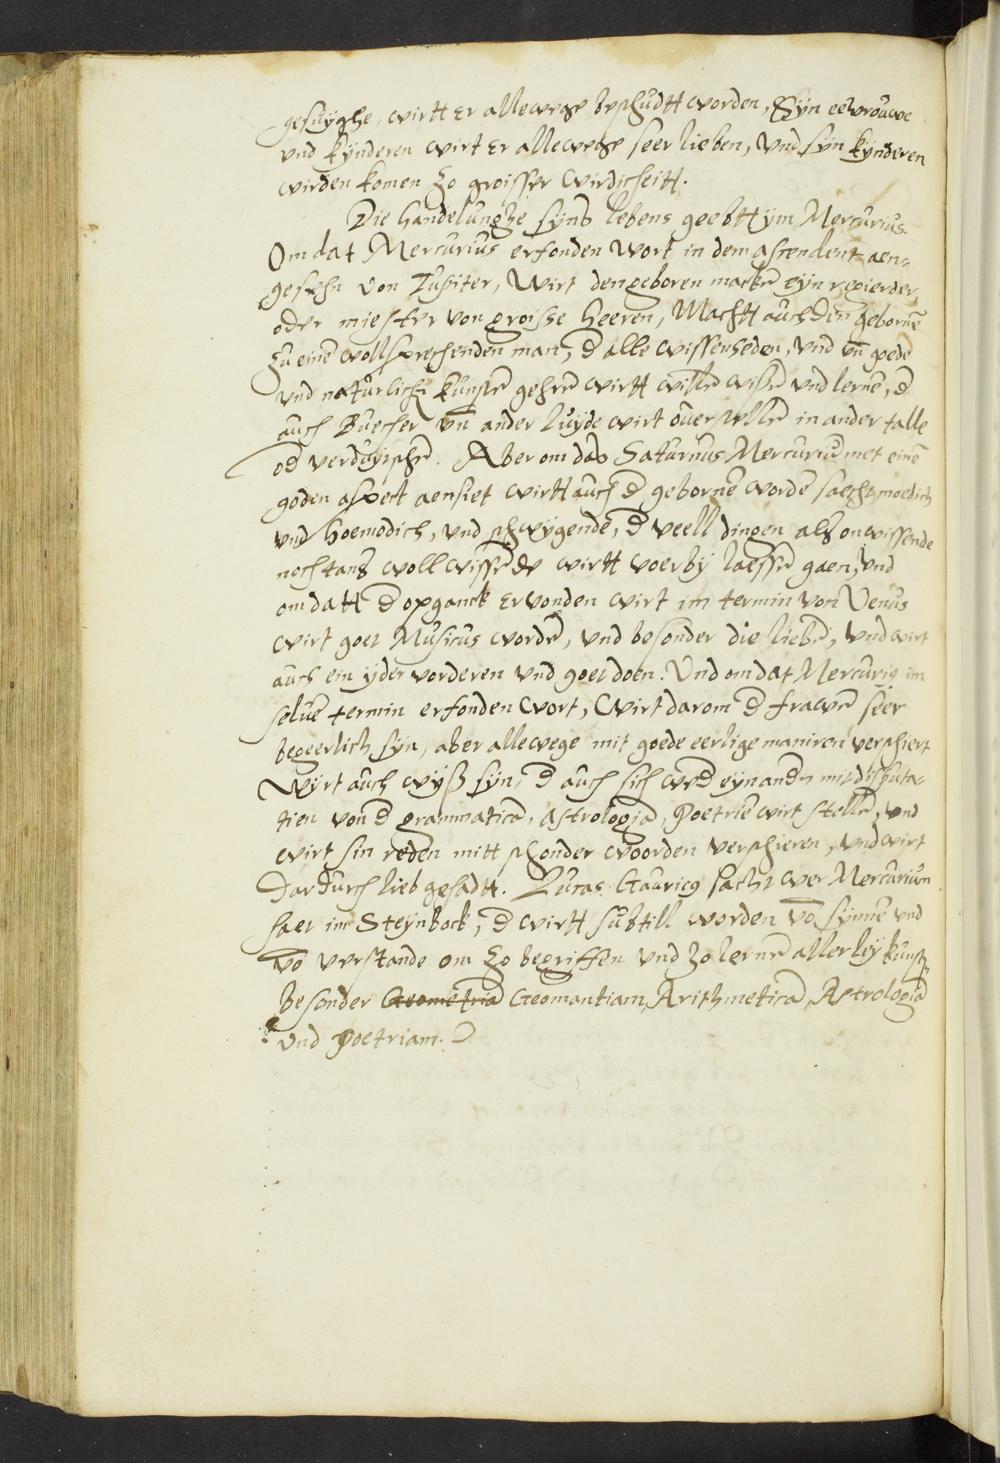 gesuÿghe, wirtt er allewege beschudtt worden, Sÿn eevrouwe
und kÿnderen wirt er allewege seer lieben, und sÿn kÿnderen
wirden komen zo groisser wirdicheitt.
Die handelunghe sÿns lebens geebtt ÿm Mercurius.
Om dat Mercurius erfonden wort in dem ascendent aen-
gesehn von Jupiter, wirt den geboren macken eÿn regierder,
oder miester von groisse heeren, Machtt auch den gebornē
zu einē wollsprechenden man, d̄ alle wissenheden, und un̄ goede
und natürliche kunsten̄ gehren̄ wirtt willen̄ wissen̄ und lernē, d̄
auch Buecher un̄ ander luÿde wirt overstellen̄ in ander talle
od̄ verduÿtschen̄. Aber om das Saturnus Mercuriū met einē
goden aspect aensiet wirtt auch d̄ gebornē wordē saechtmoedich
und hoemodich, und schwÿgende, d̄ veell dingen als onwissende
nochtans woll wissende wirtt voerbÿ laessen̄ gaen, und
om datt d̄ opganck ervonden wirt im termin von Venus
wirt goet Musicus worden̄, und besonder die lieben̄, und wirt
auch ein ÿder vorderen und goet doen. Und om dat Mercurig im
seluē termin erfonden wort, wirt darom d̄ frawen̄ seer
begeerlich sÿn, aber allewege mit goede eerlige maniren verschiert
wÿrt auch wÿß sÿn, d̄ auch sich wed̄ eÿn andr̄ mit disputa-
tien von d̄ grammaticā, astrologiā, Poetriē wirt stellen̄, und
wirt sin reden mitt schonder woorden verschieren, und wirt
dardurch lieb gehadtt. Lucas Gauricg sacht wer Mercurium
haet im Steÿnbock, d̄ wirtt subtill worden vō sÿnnē und
vō verstande om zo begriffen und zo lernen̄ allerleÿ kunsten
besonder Geometriā Geomantiam, Arithmeticā, Astrologiā
und Poetriam.